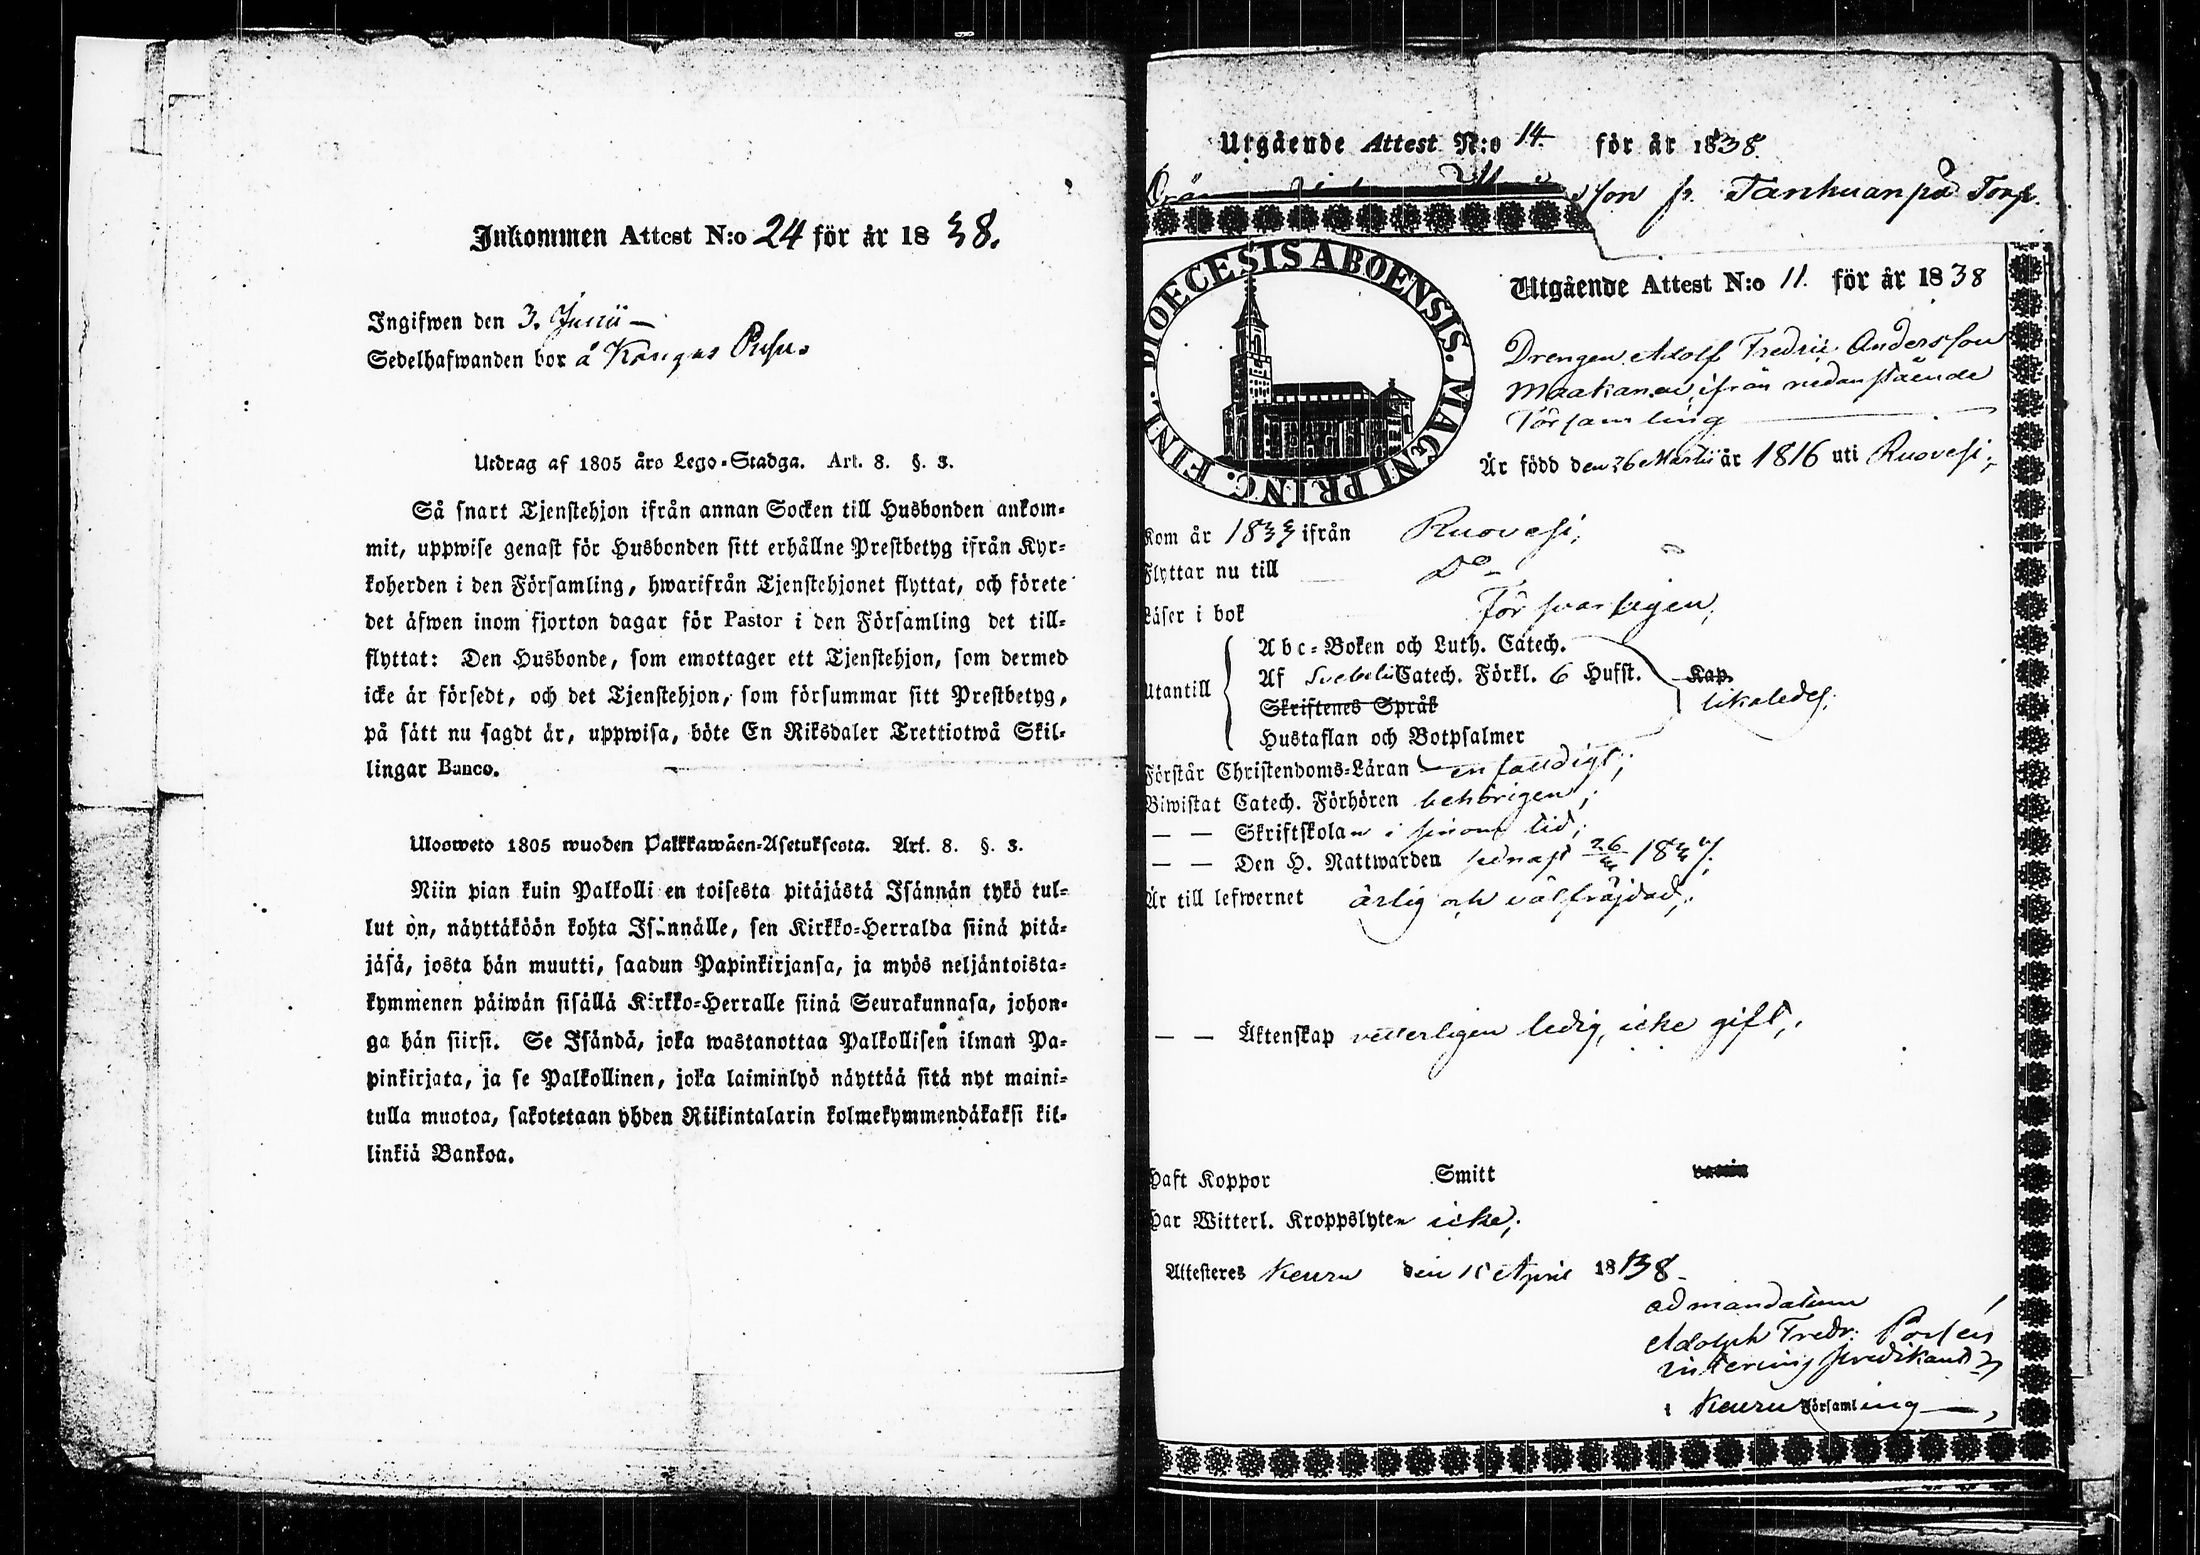 Inkommen Attest N:o 24 för år 1838.
Ingifwen den 3. Junii
Sedelhafwanden bor å Kangas
Utdrag af 1805 års Lego-Stadga. Art. 8. §. 3.
Så snart Tjenstehjon ifrån annan Socken till Husbonden ankom-
mit, uppwise genast för Husbonden sitt erhållne Prestbetyg ifrån Kyr-
koherden i den Församling, hwarifrån Tjenstehjonet flyttat, och förete
det äfwen inom fjorton dagar för Pastor i den Församling det till-
flyttat: Den Husbonde, som emottager ett Tjenstehjon, som dermed
icke är försedt, och det Tjenstehjon, som försummar sitt Prestbetyg,
på sätt nu sagdt är, uppwisa, böte En Riksdaler Trettiotwå Skil-
lingar Banco.
Ulosweto 1805 wuoden Palkkawäen-Asetuksesta. Art. 8. §. 3.
Niin pian kuin Palkolli en toisesta pitäjästä Isännän tykö tul-
lut on, näyttäköön kohta Isännälle, sen Kirkko-Herralda siinä pitä-
jäsä, josta hän muutti, saadun Papinkirjansa, ja myös neljäntoista-
kymmenen päiwän sisällä Kirkko-Herralle siinä Seurakunnasa, johon-
ga hän siirsi. Se Isändä, joka wastanottaa Palkollisen ilman Pa-
pinkirjata, ja se Palkollinen, joka laiminlyö näyttää sitä nyt maini-
tulla muotoa, sakotetaan yhden Riikintalarin kolmekymmendäkaksi kil-
linkiä Bankoa.
Utgående Attest N:o 14. för år 1838.
son fr. Tanhuanpää Torp.
DIOECESIS ABOENSIS. MAGNI PRINC. FINL.
Utgående Attest N:o 11. för år 1838
Drengen Adolf Fredric Andersson
Maakanen, ifrån nedanstående
Församling
Är född den 26 Martii år 1816 uti Ruovesi;
Kom år 1833 ifrån Ruovesi,
Flyttar nu till Do
Läser i bok försvarligen,
Abc-Boken och Luth. Catech.
Af Svebelii Catech. Förkl. 6 Hufst. Kap.
Utantill likaledes;
Skriftenes Språk
Hustaflan och Botpsalmer
Förstår Christendoms-Läran enfaldigt;
Biwistat Catech. Förhören behörigen;
— — Skriftskolan i sinom tid;
— — Den H. Nattwarden sednast 26/ 1837.
Är till lefwernet ärlig och välfräjdad;
— — Äktenskap vetterligen ledig, icke gift;
Haft Koppor Smitt
Har Witterl. Kroppslyten icke;
Attesteres Keuru den 15 April 1838
ad mandatum
Adolph Fredr:
predikant
i Keuru Församling